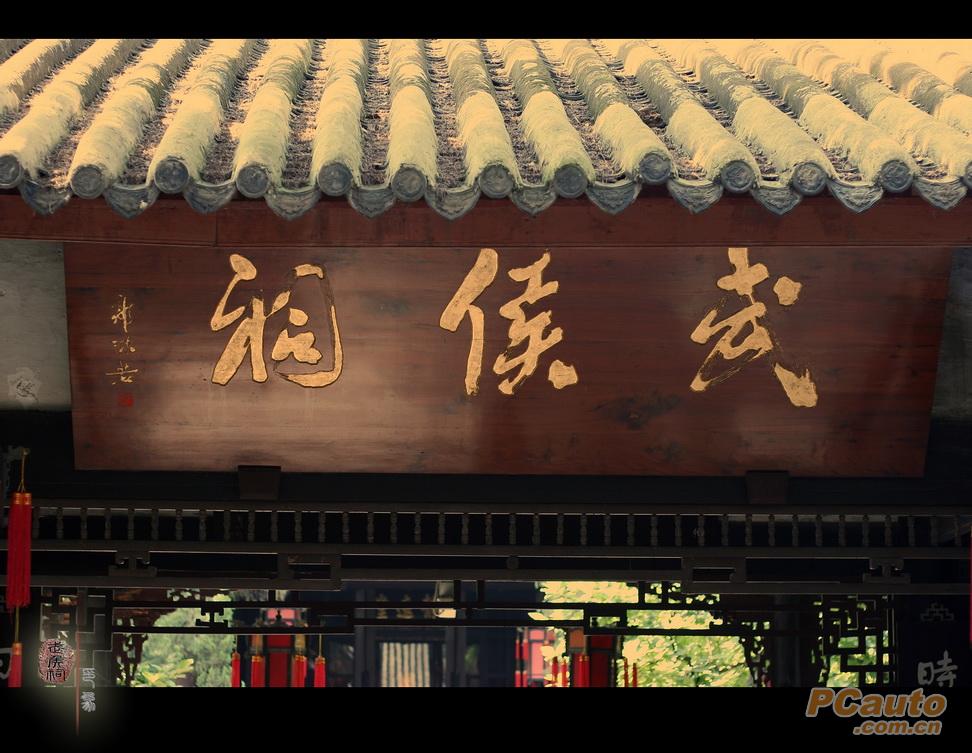 武侯祠
郭沫若
武侯祠
印象
時
PCauto
.com.cn